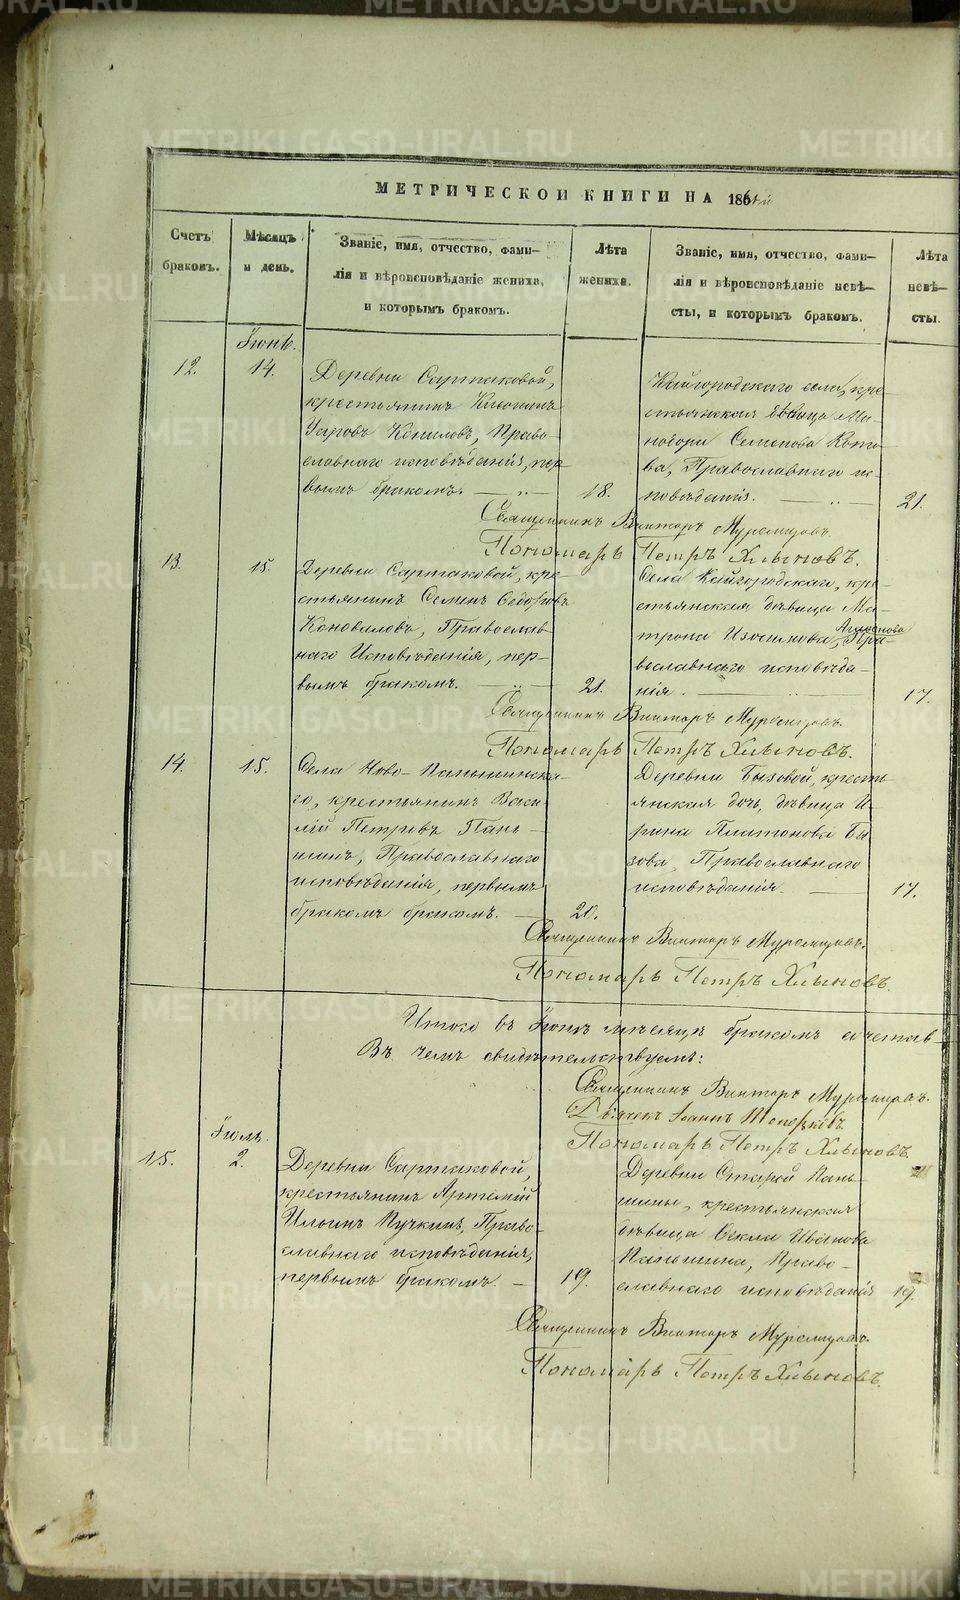 МЕТРИЧЕСКОЙ КНИГИ НА 186
Счетъ браковъ.
Мѣсяцъ и день.
Званіе, имя, отчество, фами-
лія и вѣроисповѣданіе жениха,
и которымъ бракомъ.
Лѣта жениха.
Званіе, имя, отчество, фами-
лія и вѣроисповѣданіе невѣ-
сты, и которымъ бракомъ.
Лѣта невѣ-
сты.
Іюнь.
12.
14.
Деревни Сартаковой,
крестьянинъ
Кониловъ, Право-
славнаго исповѣданія, пер-
вымъ бракомъ.
18.
Кайгородскаго села, кре-
стьянская дѣвица Ми-
нодора Семенова
Православнаго ис-
повѣданія.
21.
Священникъ Викторъ Муромцовъ.
Пономарь Петръ Хлыновъ.
13.
15.
Деревни Сартаковой, кре-
стьянинъ Семенъ Ѳедоровъ
Коноваловъ, Православ-
наго Исповѣданія, пер-
вымъ бракомъ.
21.
Села Кайгородскаго, кре-
стьянская дѣвица Ма-
трона Пра-
вославнаго исповѣда-
нія.
17.
Священникъ Викторъ Муромцовъ.
Пономарь Петръ Хлыновъ.
14.
15.
Села Ново-Паньшинска-
го, крестьянинъ Васи-
лій Петровъ Пань-
шинъ, Православнаго
исповѣданія, первымъ
бракомъ бракомъ.
20.
Деревни Бызовой, кресть-
янская дочь, дѣвица И-
рина Платонова Бы-
зова, Православнаго
исповѣданія.
17.
Священникъ Викторъ Муромцовъ.
Пономарь Петръ Хлыновъ.
Итого въ Іюнѣ мѣсяцѣ бракомъ сочетав-
Въ чемъ свидѣтельствуемъ:
Священникъ Викторъ Муромцовъ.
Дьячекъ Іоаннъ Топорковъ.
Пономарь Петръ Хлыновъ.
Іюль.
15.
2.
Деревни Сартаковой,
крестьянинъ Артемій
Пучкинъ, Право-
славнаго исповѣданія,
первымъ бракомъ.
19.
Деревни Старой Пань-
шины, крестьянская
дѣвица Ѳекла Иванова
Паньшина, Право-
славнаго исповѣданія
19.
Священникъ Викторъ Муромцовъ.
Пономарь Петръ Хлыновъ.
METRIKI.GASO-URAL.RU